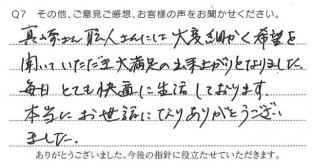 Q7 その他、ご意見ご感想、お客様の声をお聞かせください。
真崎さん 職人さんには 大変き細かく希望を
聞いていただき大満足の出来上がりとなりました。
毎日 とても快適に生活しております。
本当に お世話になりありがとうござい
ました。
ありがとうございました。今後の指針に役立たせていただきます。